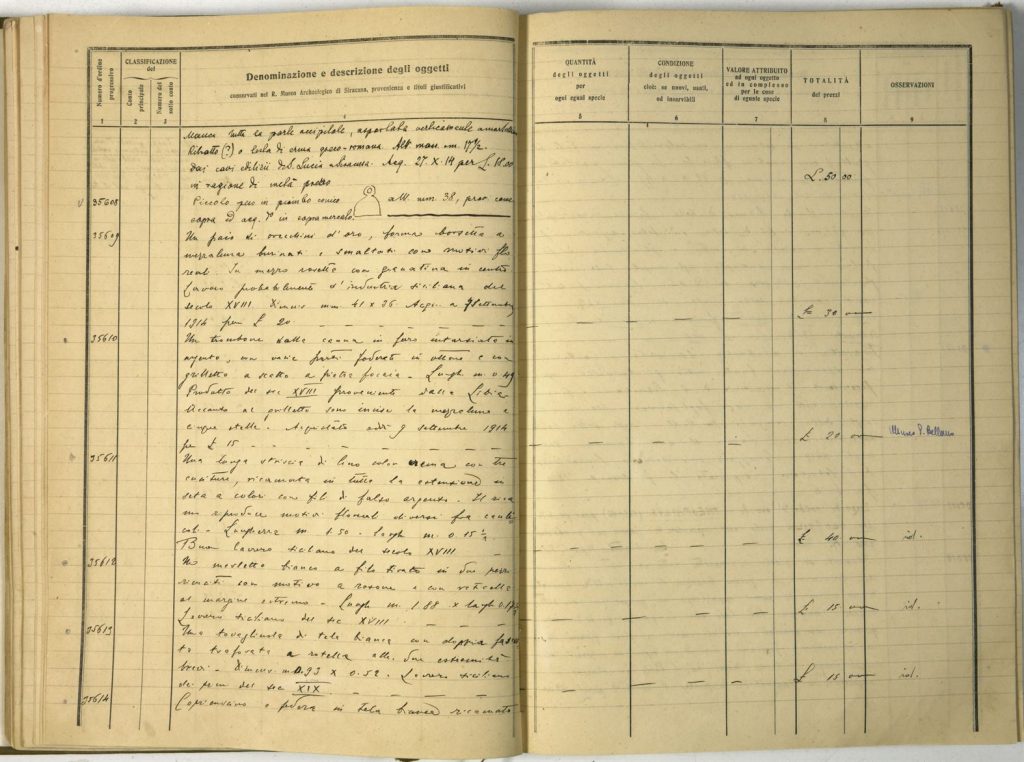 Numero d'ordine progressivo
CLASSIFICAZIONE del
Conto principale
Numero del sotto conto
Denominazione e descrizione degli oggetti
conservati nel R. Museo Archeologico di Siracusa, provenienza e titoli giustificativi
QUANTITÀ degli oggetti per ogni egual specie
CONDIZIONE degli oggetti cioè: se nuovi, usati, od inservibili
VALORE ATTRIBUITO ad ogni oggetto ed in complesso per le cose di eguale specie
TOTALITÀ dei prezzi
OSSERVAZIONI
1 2 3 4 5 6 7 8 9
Manca tutta la parte occipitale, asportata verticalmente
Ritratto (?) o testa di erma greco-romana. Alt. mass. m. 17½
Dai cavi edilizii di S. Lucia a Siracusa. Acq. 27. X. 14 per L.
in ragione di metà prezzo
L. 50 00
35608 Piccolo peso in piombo conico alt. mm 38, prov. come
sopra ed acq. in sopramercato.
35609 Un paio di orecchini d'oro, forma borsetta a
mezzaluna burinati e smaltati con motivi flo
reali. In mezzo rosetta con granatina in centro
Lavoro probabilmente d'industria siciliana del
secolo XVIII mm 41 x 36 Acqu. a 7 Settembre
1914 per £ 20
30
35610 Un trombone dalla canna in ferro intarsiato in
argento, con varie parti foderate in ottone e con
grilletto a scatto a pietra focaia. Lungh. m. 0.49
Prodotto del sec XVIII proveniente dalla Libia
Accanto al grilletto sono incise la mezzaluna e
cinque stelle. Acquistato addì 9 settembre 1914
per £ 15
£ 20
Museo P. Bellomo
35611 Una lunga striscia di lino color crema con tre
cuciture, ricamata in tutta la estensione in
seta a colori con fili di falso argento. Il rica
mo riproduce motivi floreali diversi fra
Lunghezza m. 1.50. largh m. 0.15½
Buon lavoro siciliano del secolo XVIII
£ 40
id.
35612 Un merletto bianco a filo tirato in due pezzi
riuniti con motivo a rosone e con reticella
al margine estremo. Lungh m. 1.88 x largh
Lavoro siciliano del sec XVIII
£ 15
id.
35613 Una tovagliuola di tela bianca con doppia fascet
ta traforata a rotella alle due estremità
brevi. Dimens. m 0.93 x 0.52. Lavoro siciliano
dei primi del sec XIX
£ 15
id.
35614 Copricuscino o federa in tela bianca ricamato